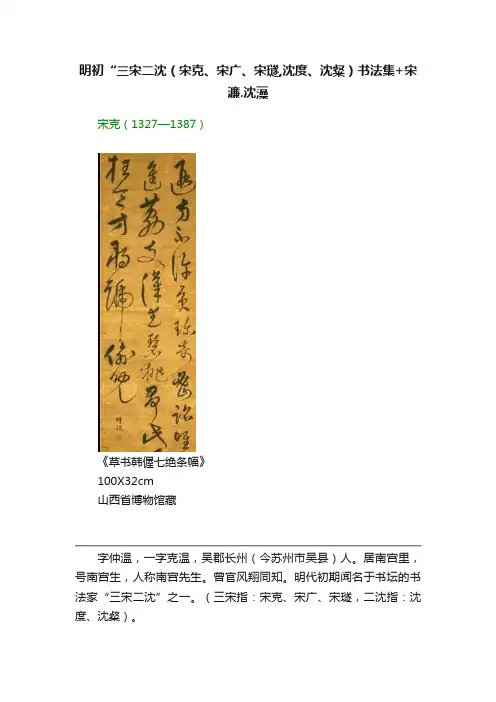 明初“三宋二沈（宋克、宋广、宋璲,沈度、沈粲）书法集+宋
濂.沈藻
宋克（1327—1387）
遐方不許貢珍奇密詔唯
進荔支漢武碧桃爭比
枉令方朔號偷兒
《草书韩偓七绝条幅》
100X32cm
山西省博物馆藏
字仲温，一字克温，吴郡长州（今苏州市吴县）人。居南宫里，
号南宫生，人称南宫先生。曾官风翔同知。明代初期闻名于书坛的书
法家“三宋二沈”之一。（三宋指：宋克、宋广、宋璲，二沈指：沈
度、沈粲）。